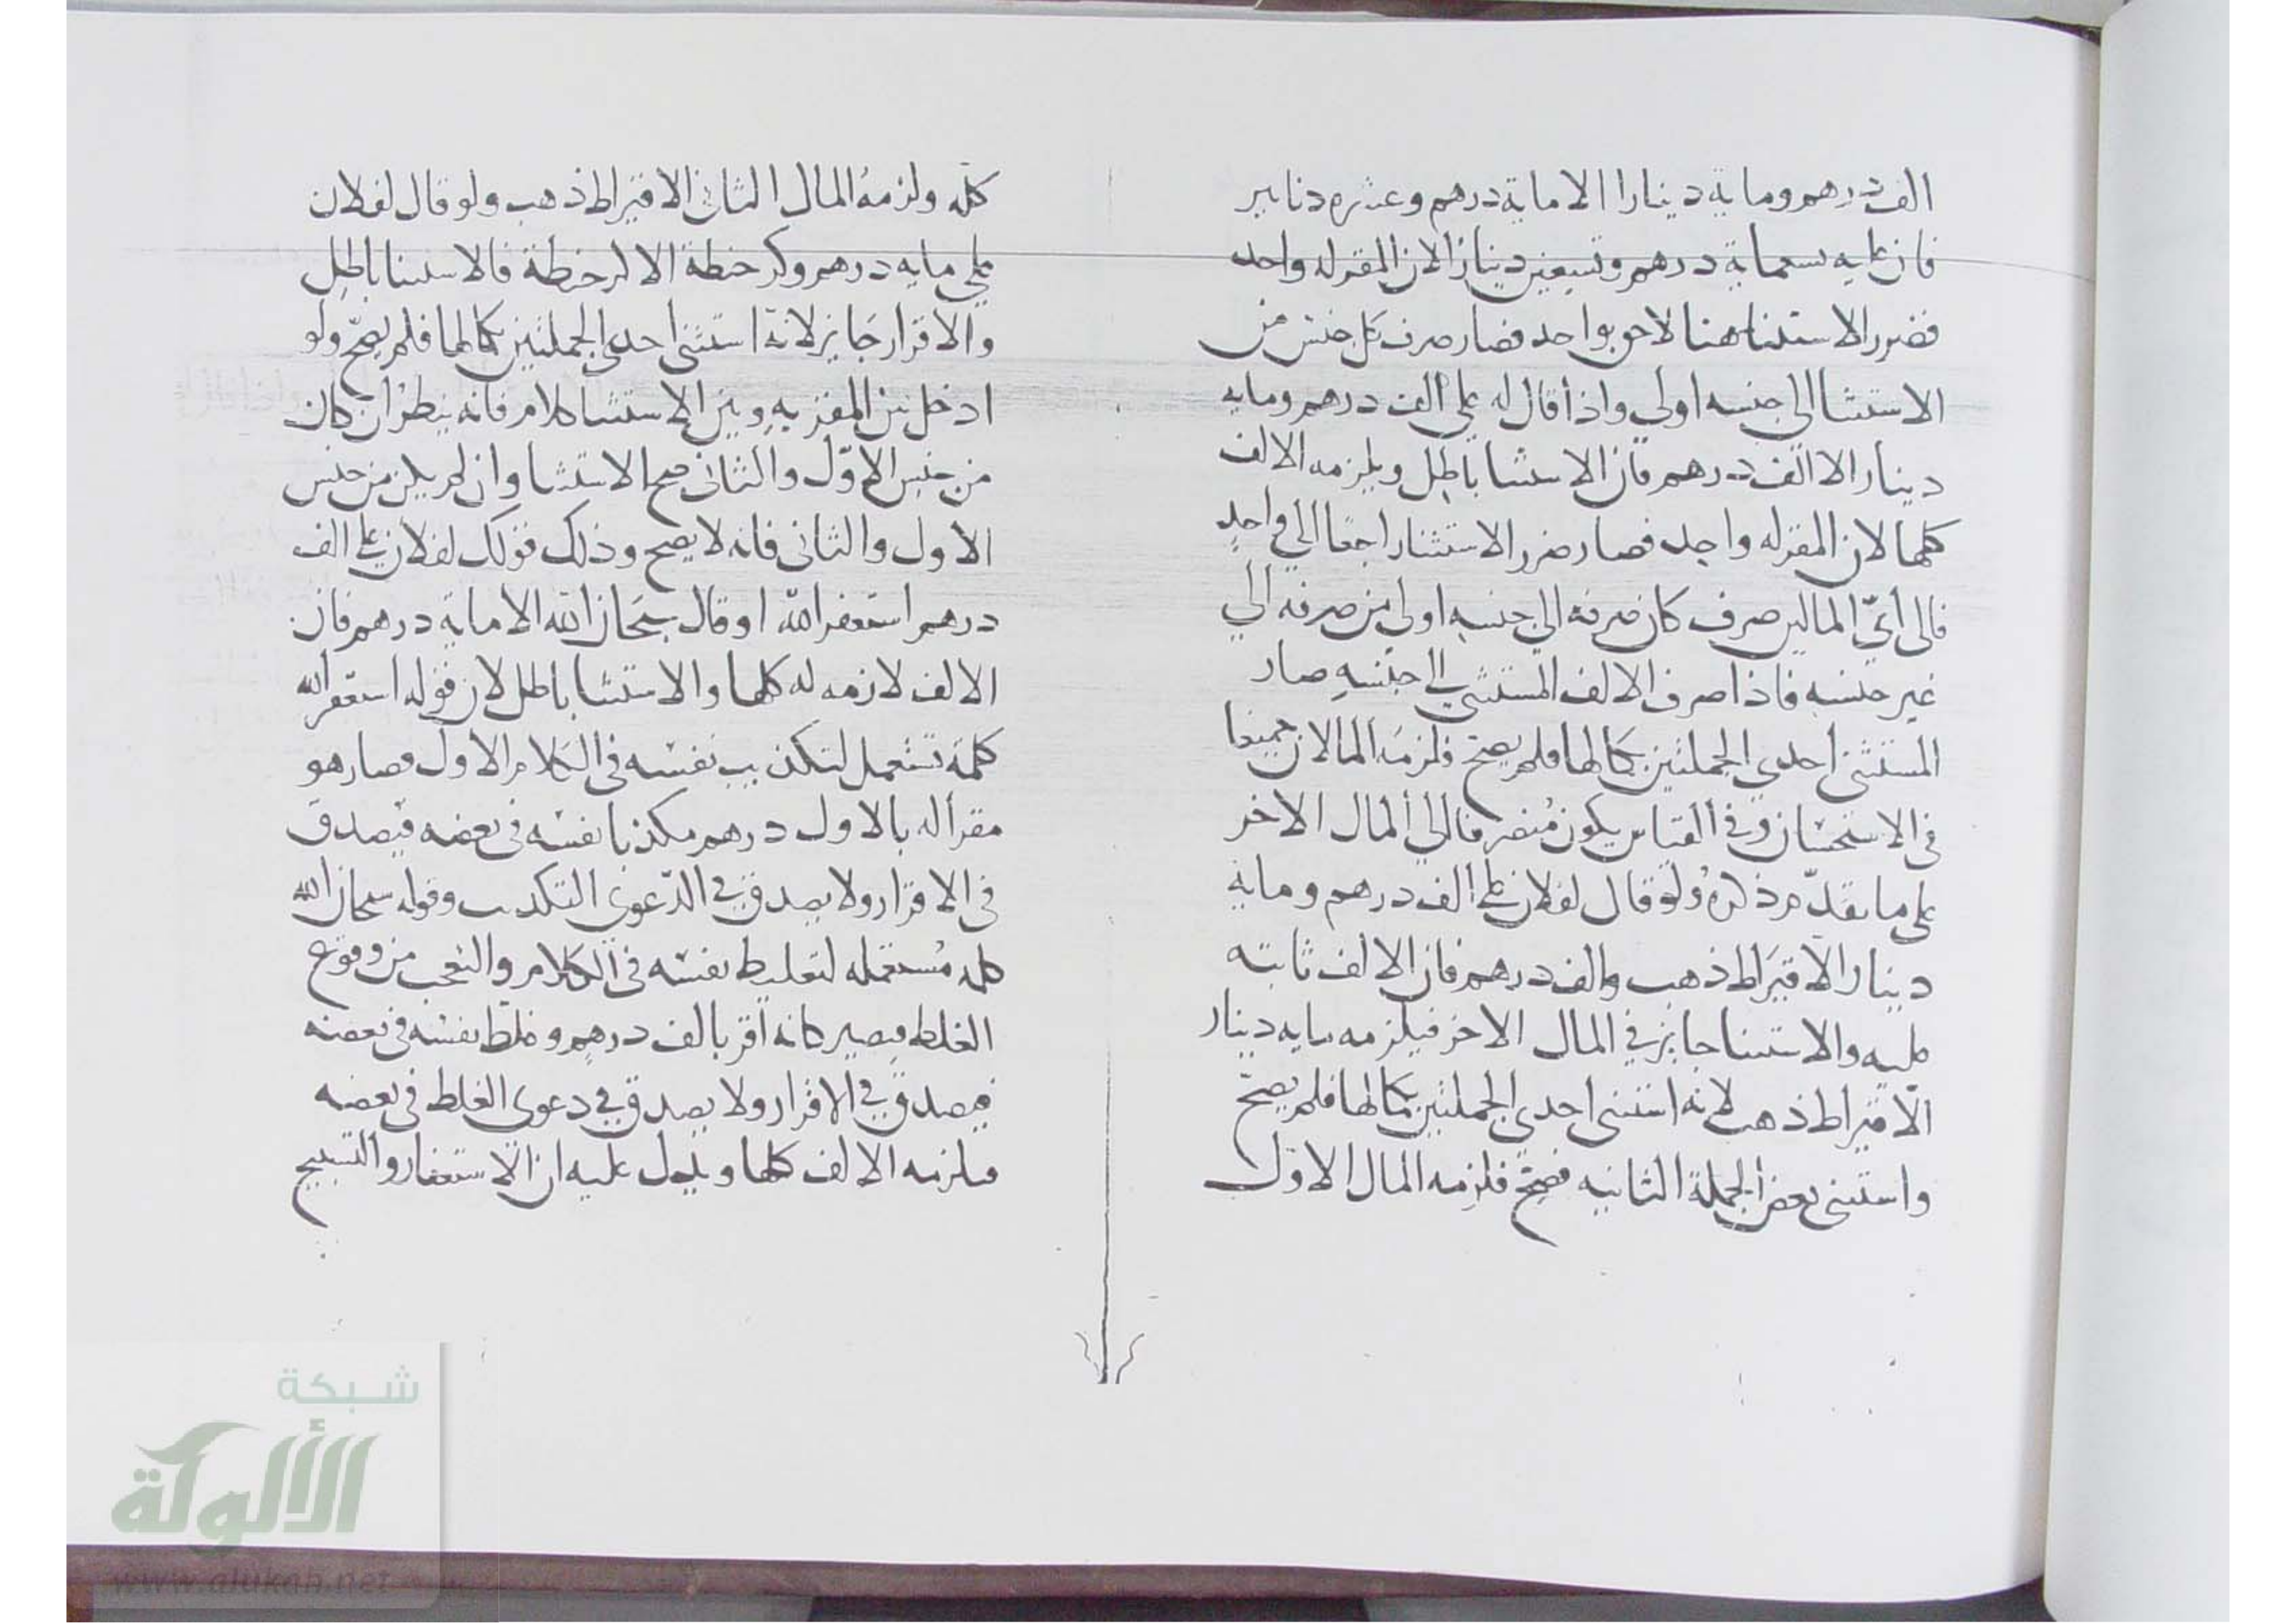 الف درهم وماية دينارا الا ماية درهم وعشره دنانير
فان عليه تسعماية درهم وتسعين دينارا لان المقر له واحد
فضرر الاستثنا هنا لاحق بواحد فصار صرف كل جنس من
الاستثنا الى جنسه اولى واذا قال له علي الف درهم ومايه
دينار الا الف درهم فان الاستثنا باطل ويلزمه الالف
كلها لان المقر له واحد فصار ضرر الاستثنا راجعا الى واحد
فالى أيّ المالين صرف كان صرفه الى جنسه اولى من صرفه الى
غير جنسه فاذا صرف الالف المستثنى الى جنسه صار
المستثنى احدى الجملتين بكمالها فلم يصح فلزمه المالان جميعا
في الاستحسان وفي القياس يكون منصرفا الى المال الاخر
على ما تقدّم ذكره ولو قال لفلان علي الف درهم وماية
دينار الا قيراط ذهب والف درهم فان الالف ثابته
عليه والاستثنا جايز في المال الاخر فيلزمه مايه دينار
الّا قيراط ذهب لانه استثنى احدى الجملتين بكمالها فلم يصحّ
واستثنى بعض الجملة الثانيه فصحّ فلزمه المال الاوّل
كلّه ولزمه المال الثاني الا قيراط ذهب ولو قال لفلان
علي مايه درهم وكر حنطة الا كر حنطة فالاستثنا باطل
والاقرار جايز لانّه استثنى احدى الجملتين بكمالها فلم يصحّ ولو
ادخل بين المقر به وبين الاستثنا كلام فانه ينظر ان كان
من جنس الاوّل والثاني صح الاستثنا وان لم يكن من جنس
الاول والثاني فانه لا يصح وذلك قولك لفلان علي الف
درهم استغفر الله او قال سبحان الله الا ماية درهم فان
الالف لازمه له كلها والاستثنا باطل لان قوله استغفر الله
كلمة تستعمل لتكذيب نفسه في الكلام الاول فصار هو
مقرا له بالاول درهم مكذبا نفسه في بعضه فيصدق
في الاقرار ولا يصدق في الدّعوى التكذيب وقوله سبحان الله
كلمه مستعمله لتغليط نفسه في الكلام والتعجب من وقوع
الغلط فيصير كانه اقر بالف درهم وغلط نفسه في بعضه
فيصدق في الاقرار ولا يصدق في دعوى الغلط في بعضه
فيلزمه الالف كلها ويدل عليه ان الاستغفار والتسبيح
شبكة
الألوكة
www.alukah.net